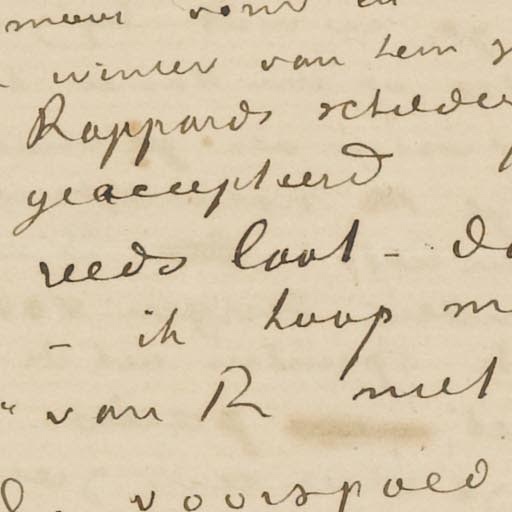 meer vond en
winter van hem
Rappards schilder
geaccepteerd
reeds laat – da
– ik hoop m
van R met
voorspoed